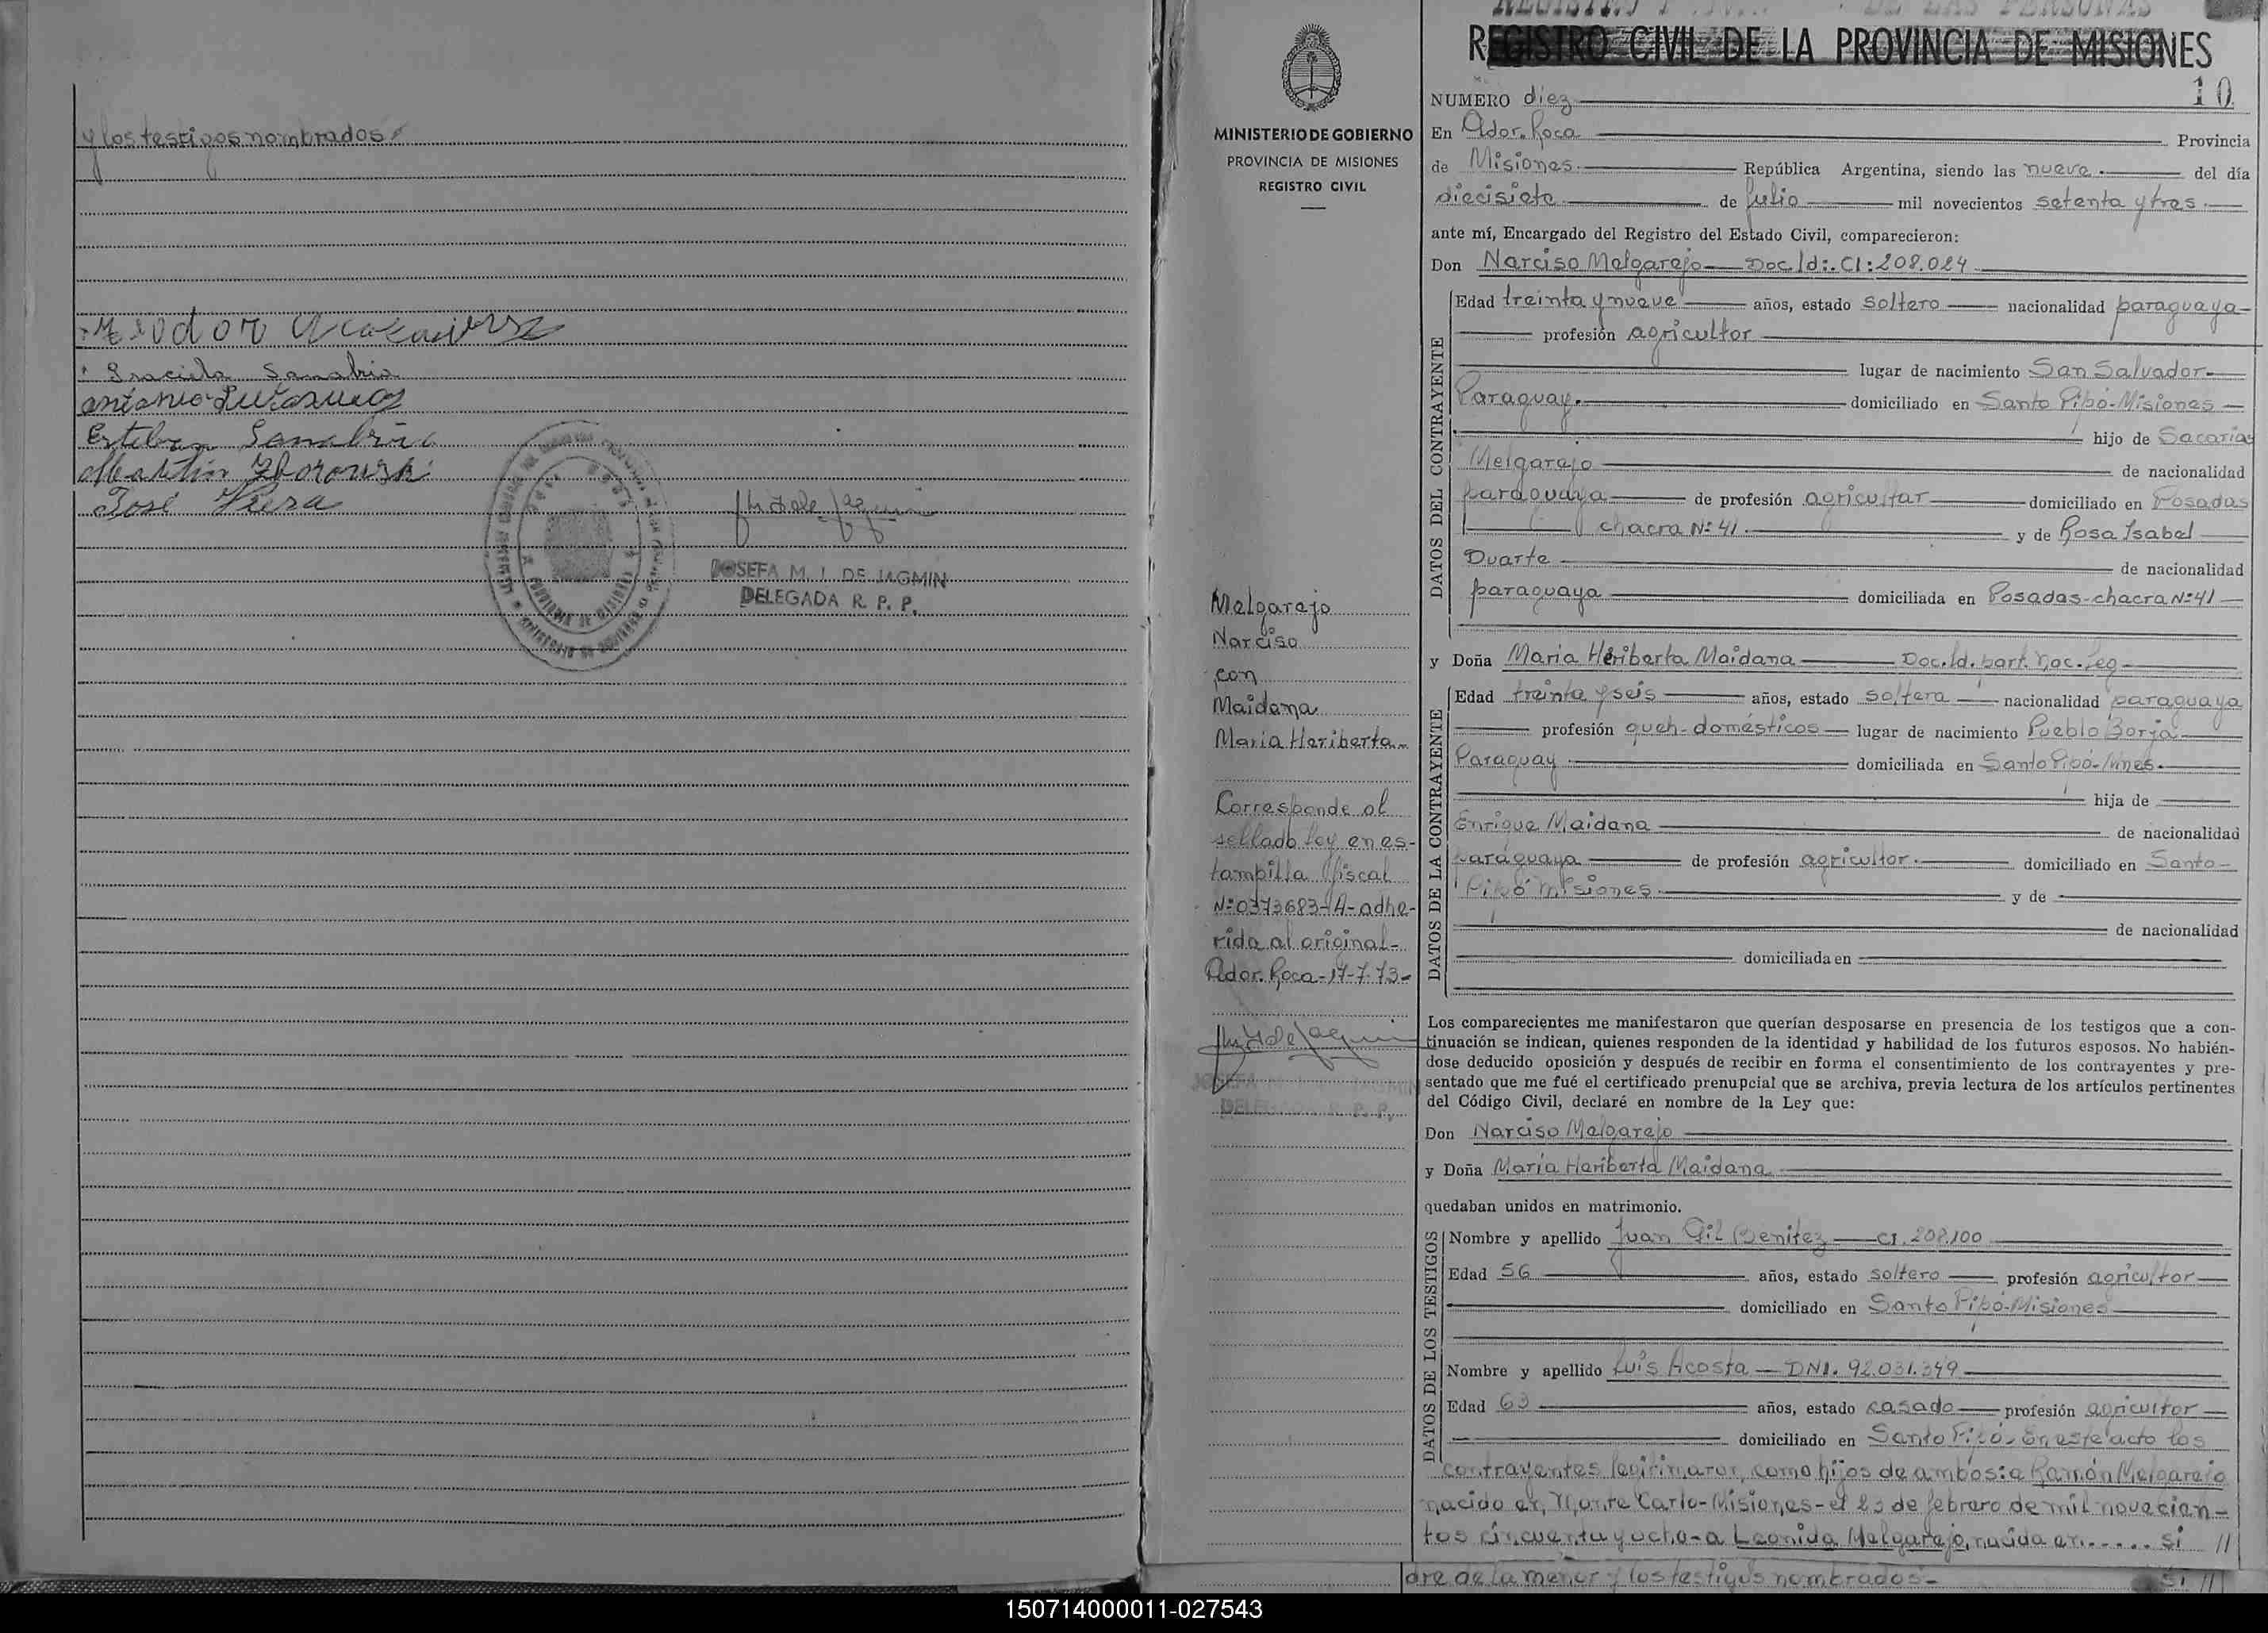 y los testigos nombrados
Graciela Sanabria
Esteban Sanabria
Martin
José Viera
JOSEFA M. I. DE JAGMIN
DELEGADA R. P. P.
MINISTERIO DE GOBIERNO
PROVINCIA DE MISIONES
REGISTRO CIVIL
Melgarejo
Narciso
con
Maidana
María Heriberta
Corresponde al
sellado ley en es-
tampilla fiscal
Nº 0373683-A-adhe-
rida al original-
Ador. Roca-17-7-73-
DELEGADA R. P. P.
REGISTRO CIVIL DE LA PROVINCIA DE MISIONES
10
NUMERO diez
En Ador. Roca Provincia
de Misiones. República Argentina, siendo las nueve. del día
diecisiete de julio mil novecientos setenta y tres.
ante mí, Encargado del Registro del Estado Civil, comparecieron:
Don Narciso Melgarejo Doc. Id:. CI: 208.024
DATOS DEL CONTRAYENTE
Edad treinta y nueve años, estado soltero nacionalidad paraguaya-
profesión agricultor
lugar de nacimiento San Salvador-
Paraguay. domiciliado en Santo Pipó-Misiones
hijo de Sacarías
Melgarejo de nacionalidad
paraguaya de profesión agricultor domiciliado en Posadas
chacra Nº 41. y de Rosa Isabel
Duarte de nacionalidad
paraguaya domiciliada en Posadas-chacra Nº 41
y Doña Maria Heriberta Maidana Doc. Id. part. nac. leg.
DATOS DE LA CONTRAYENTE
Edad treinta y seis años, estado soltera nacionalidad paraguaya
profesión queh-domésticos lugar de nacimiento Pueblo Borja
Paraguay. domiciliada en Santo Pipó-Mnes.
hija de
Enrique Maidana de nacionalidad
paraguaya de profesión agricultor. domiciliado en Santo-
Pipó Misiones. y de
de nacionalidad
domiciliada en
Los comparecientes me manifestaron que querían desposarse en presencia de los testigos que a con-
tinuación se indican, quienes responden de la identidad y habilidad de los futuros esposos. No habién-
dose deducido oposición y después de recibir en forma el consentimiento de los contrayentes y pre-
sentado que me fué el certificado prenupcial que se archiva, previa lectura de los artículos pertinentes
del Código Civil, declaré en nombre de la Ley que:
Don Narciso Melgarejo
y Doña María Heriberta Maidana
quedaban unidos en matrimonio.
DATOS DE LOS TESTIGOS
Nombre y apellido Juan Gil Benitez CI. 208.100
Edad 56 años, estado soltero profesión agricultor
domiciliado en Santo Pipó-Misiones
Nombre y apellido Luís Acosta - DNI. 92.031.349
Edad 63 años, estado casado profesión agricultor
domiciliado en Santo Pipó. En este acto los
contrayentes legitimaron, como hijos de ambos: a Ramón Melgarejo
nacido en Monte Carlo-Misiones-el 23 de febrero de mil novecien-
tos cincuenta y ocho-a Leonida Melgarejo, nacida en..... si //
dre de la menor y los testigos nombrados- si //
150714000011-027543